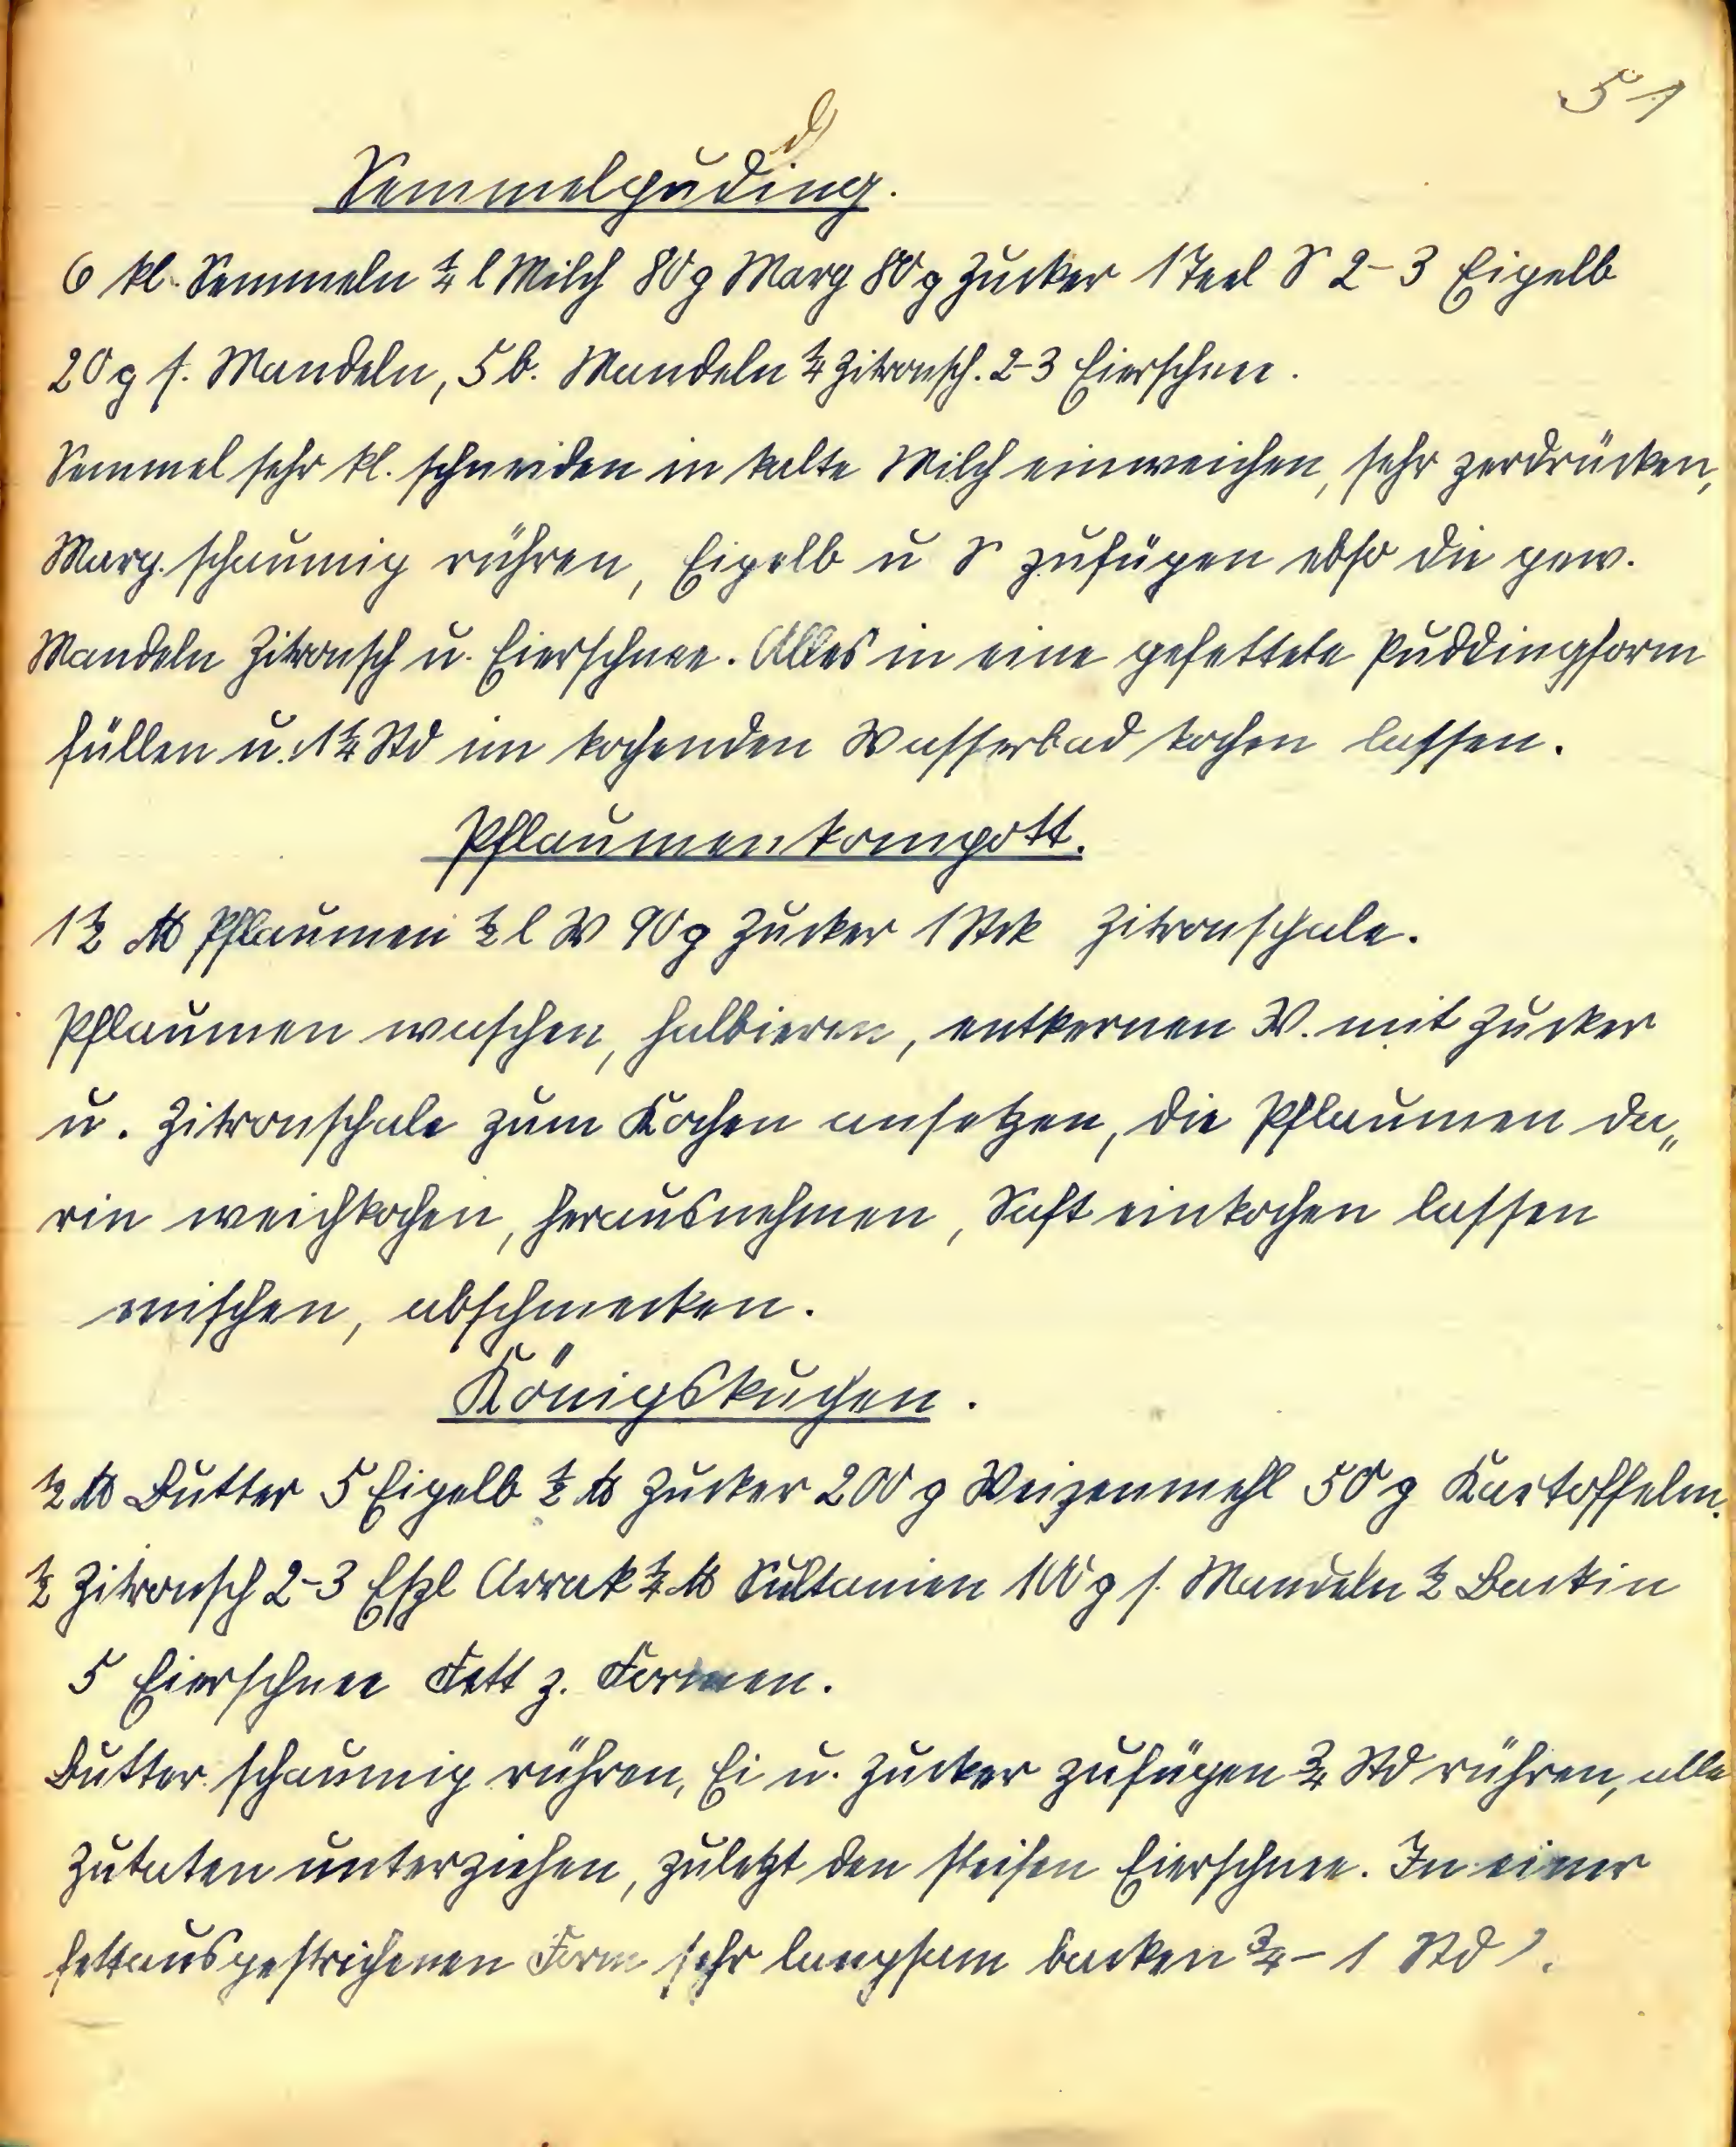 51
d
Semmelpuding.
6 kl. Semmeln ¼ l Milch 80 g Marg 80 g Zucker 1 Teel S 2-3 Eigelb
20 g s. Mandeln, 5 b. Mandeln ¼ Zitronsch. 2-3 Eierschnee.
Semmel sehr kl. schneiden in kalte Milch einweichen, sehr zerdrücken,
Marg. schaumig rühren, Eigelb u S zufügen ebso die gew.
Mandeln Zitronsch u. Eierschnee. Alles in eine gefettete Puddingform
füllen u. 1¼ Std im kochenden Wasserbad kochen lassen.
Pflaumenkompott.
1½ ℔ Pflaumen ½ l W 90 g Zucker 1 Stck Zitronschale.
Pflaumen waschen, halbieren, entkernen W. mit Zucker
u. Zitronschale zum Kochen ansetzen, die Pflaumen da„
rin weichkochen, herausnehmen, Saft einkochen lassen
mischen, abschmecken.
Königskuchen.
½ ℔ Butter 5 Eigelb ½ ℔ Zucker 200 g Weizenmehl 50 g Kartoffelm.
½ Zitronsch 2-3 Eßl Arrak ¼ ℔ Sultanien 100 g s. Mandeln ½ Backin
5 Eierschnee Fett z. Formen.
Butter schaumig rühren, Ei u. Zucker zufügen ¾ Std rühren, alle
Zutaten unterziehen, zuletzt den steifen Eierschnee. In einer
fettausgestrichenen Form sehr langsam backen ¾ - 1 Std).